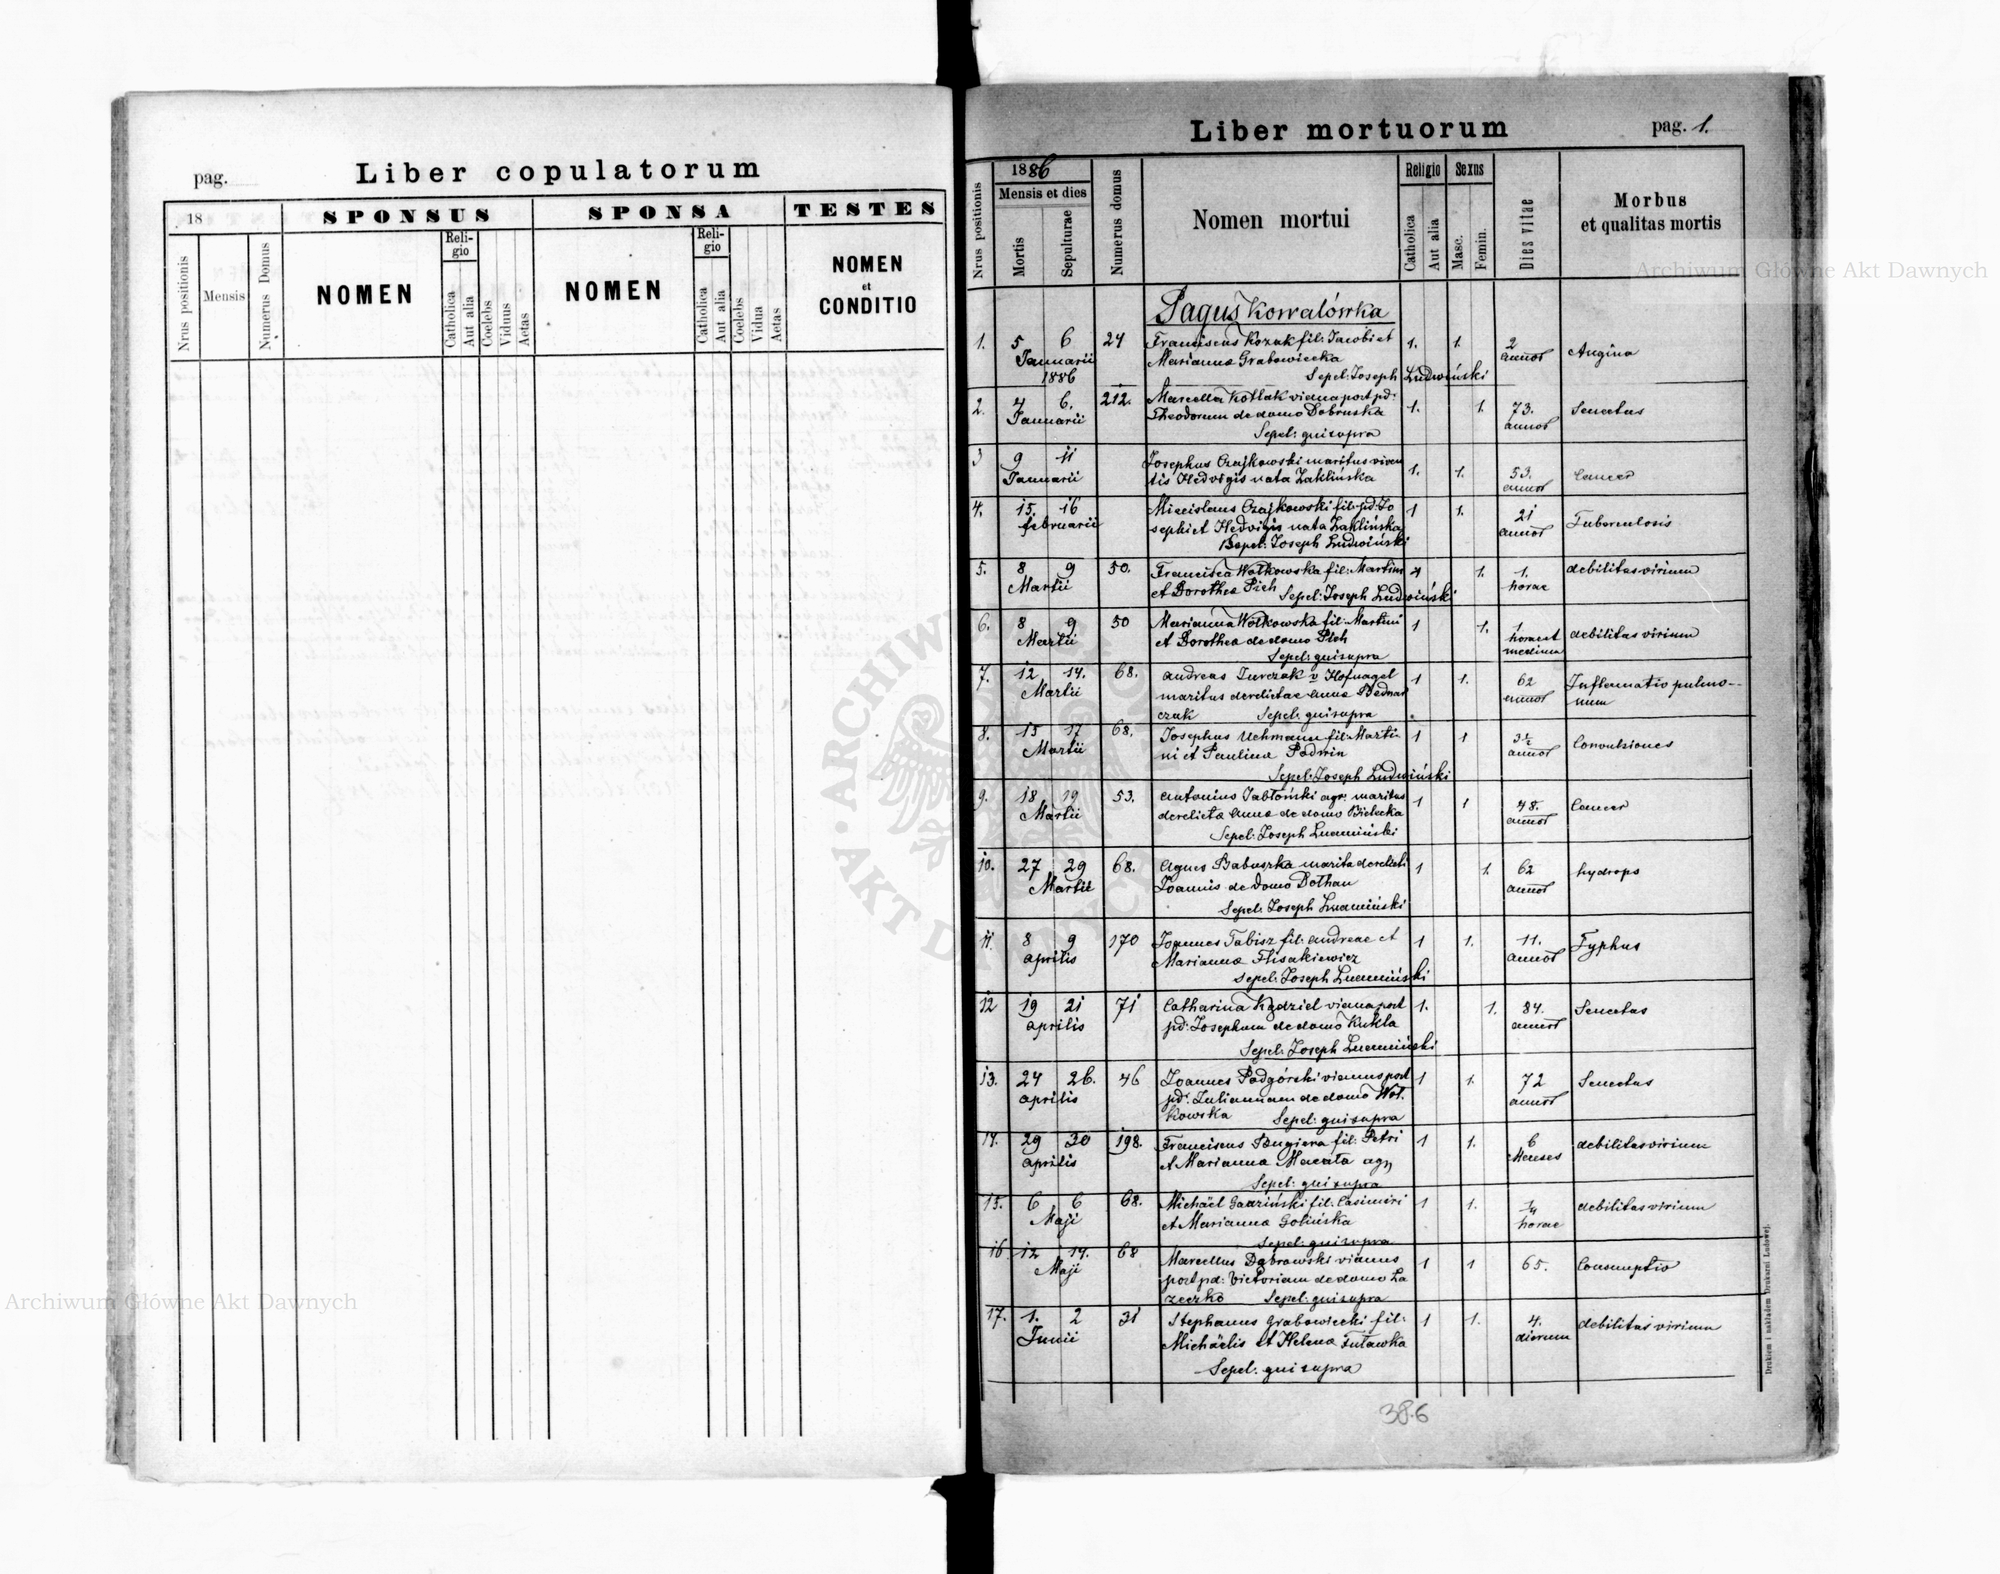 pag.
Liber copulatorum
18
SPONSUS
SPONSA
TESTES
Nrus positionis
Mensis
Numerus Domus
NOMEN
Reli-
gio
Catholica
Aut alia
Coelebs
Viduus
Aetas
NOMEN
Reli-
gio
Catholica
Aut alia
Coelebs
Vidua
Aetas
NOMEN
et
CONDITIO
Liber mortuorum
pag. 1.
Nrus positionis
1886
Mensis et dies
Mortis
Sepulturae
Numerus domus
Nomen mortui
Religio
Catholica
Aut alia
Sexus
Masc.
Femin.
Dies vitae
Morbus
et qualitas mortis
Pagus Kowalówka
1. 5 6 24 Franciscus Kozak fil: Jacobi et 1. 1. 2 Angina
Januarii Marianna Grabowiecka annor
1886 Sepel: Joseph Ludwiński
2. 4 6. 212. Marcella Kotlak vidua post pd: 1. 1. 73. Senectus
Januarii Theodorum de domo Dobruska annor
Sepel: qui supra
3 9 11 Josephus Czajkowski maritus viven 1. 1. 53. Cancer
Januarii tis Hedvigis nata Zaklińska annor
4. 15. 16 Miecislaus Czajkowski fil: pd: Jo 1 1. 21 Tuberculosis
februarii sephi et Hedvigis nata Zaklińska annor
Sepel: Joseph Ludwiński
5. 8 9 50. Francisca Wołkowska fil: Martini 1 1. 1. debilitas virium
Martii et Dorothea Pich Sepel: Joseph Ludwiński horae
6. 8 9 50 Marianna Wołkowska fil: Martini 1 1. 1 debilitas virium
Martii et Dorothea de domo Pich hora et
Sepel: qui supra medium
7. 12 14. 68. Andreas Turczak v Hofnagel 1 1. 62 Inflamatio pulmo-
Martii maritus derelictae Anna Bednar annor num
czak Sepel: qui supra
8. 15 17 68. Josephus Uchmann fil: Marti- 1 1 3½ Convulsiones
Martii ni et Paulina Podwin annor
Sepel: Joseph Ludwiński
9. 18 19 53. Antonius Jabłoński agr: maritus 1 1 48. Cancer
Martii derelicta Anna de domo Bielecka annor
Sepel: Joseph Ludwiński
10. 27 29 68. Agnes Babuszka marita derelicti 1 1. 62 hydrops
Martii Joannis de domo Bothan annor
Sepel: Joseph Ludwiński
11. 8 9 170 Joannes Tabisz fil: Andreae et 1 1. 11. Typhus
Aprilis Marianna Flisakiewicz annor
Sepel: Joseph Ludwiński
12 19 21 71 Catharina Kądziel vidua post 1. 1. 84. Senectus
Aprilis pd: Josephum de domo Kukla annor
Sepel: Joseph Ludwiński
13. 24 26. 46 Joannes Podgórski viduus post 1 1. 72 Senectus
Aprilis pd: Juliannam de domo Woł- annor
kowska Sepel: qui supra
14. 29 30 198. Franciscus Bugiera fil: Petri 1 1. 6 debilitas virium
Aprilis et Marianna Macata agr Menses
Sepel: qui supra
15. 6 6 68. Michäel Gadziński fil: Casimiri 1 1. ¼ debilitas virium
Maji et Marianna Golińska horae
Sepel: qui supra
16 12 14. 68 Marcellus Dąbrowski viduus 1 1 65. Consumptio
Maji post pd: Victoriam de domo La
zeczko Sepel: qui supra
17. 1. 2 31 Stephanus Grabowiecki fil: 1 1. 4. debilitas virium
Junii Michäelis et Helena Tutawka dierum
Sepel: qui supra
Drukiem i nakładem Drukarni Ludowej.
386
Archiwum Główne Akt Dawnych
Archiwum Główne Akt Dawnych
ARCHIWUM GŁÓWNE · AKT DAWNYCH